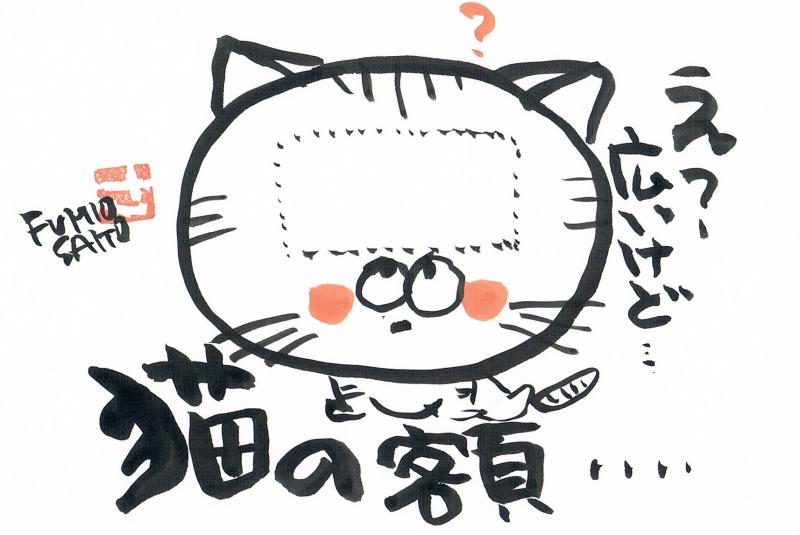 えっ、
広いけど…
?
FUMIO
SAITO
猫の額....